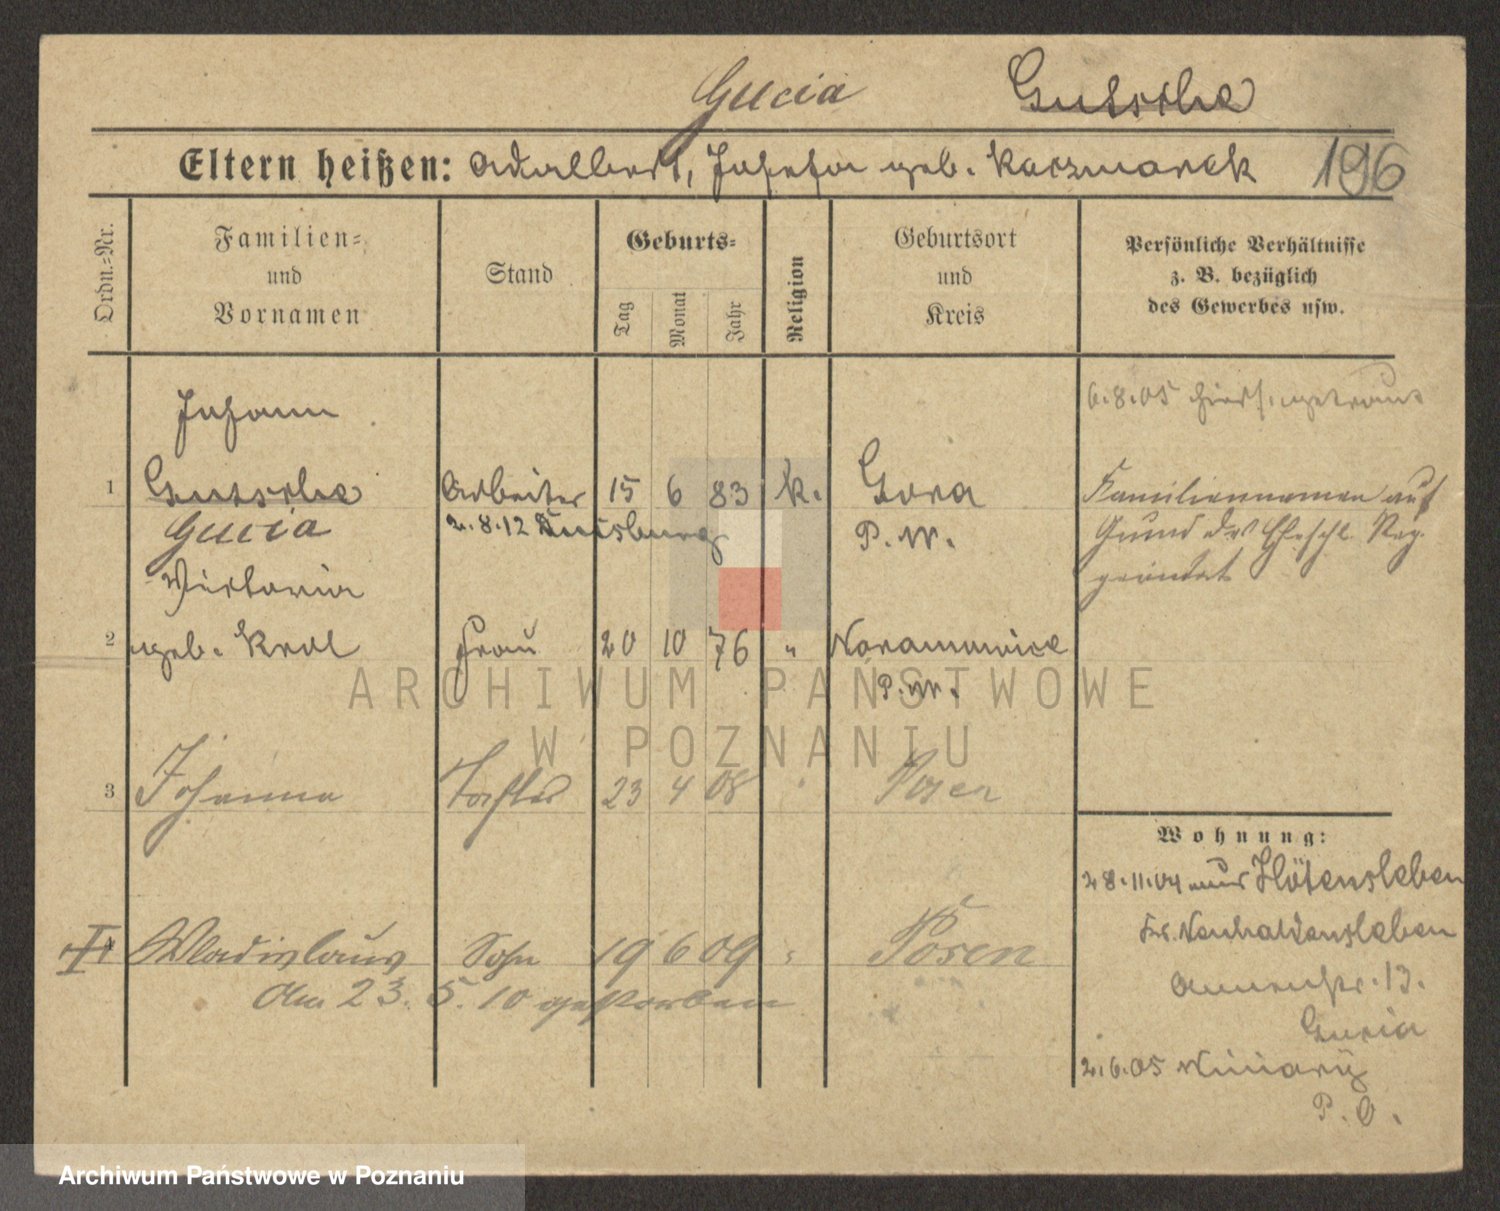 Gucia Gutsche
Eltern heißen: Adalbert, Josefa geb. Kaczmarek 196
Ordn.-Nr.
Familien-
und
Vornamen
Stand
Geburts-
Tag Monat Jahr
Religion
Geburtsort
und
Kreis
Persönliche Verhältnisse
z. B. bezüglich
des Gewerbes usw.
6.8.05 hiers. getraut
Johann
1 Gutsche Arbeiter 15 6 83 k. Gora
Gucia 2.8.12 Duisburg P. W.
Familiennamen auf
Grund des Eheschl. Reg.
geändert
Victoria
2 geb. Krol Frau 20 10 76 " Naramowice
P. W.
ARCHIWUM PAŃSTWOWE
W POZNANIU
3 Johanna Tochter 23 4 08 Posen
Wohnung:
28.11.04 aus Hötensleben
Kr. Neuhaldensleben
4 Wladislaus Sohn 19 6 09 " Posen
Am 23. 5. 10 gestorben
13.
Gucia
2.6.05
P. O.
Archiwum Państwowe w Poznaniu